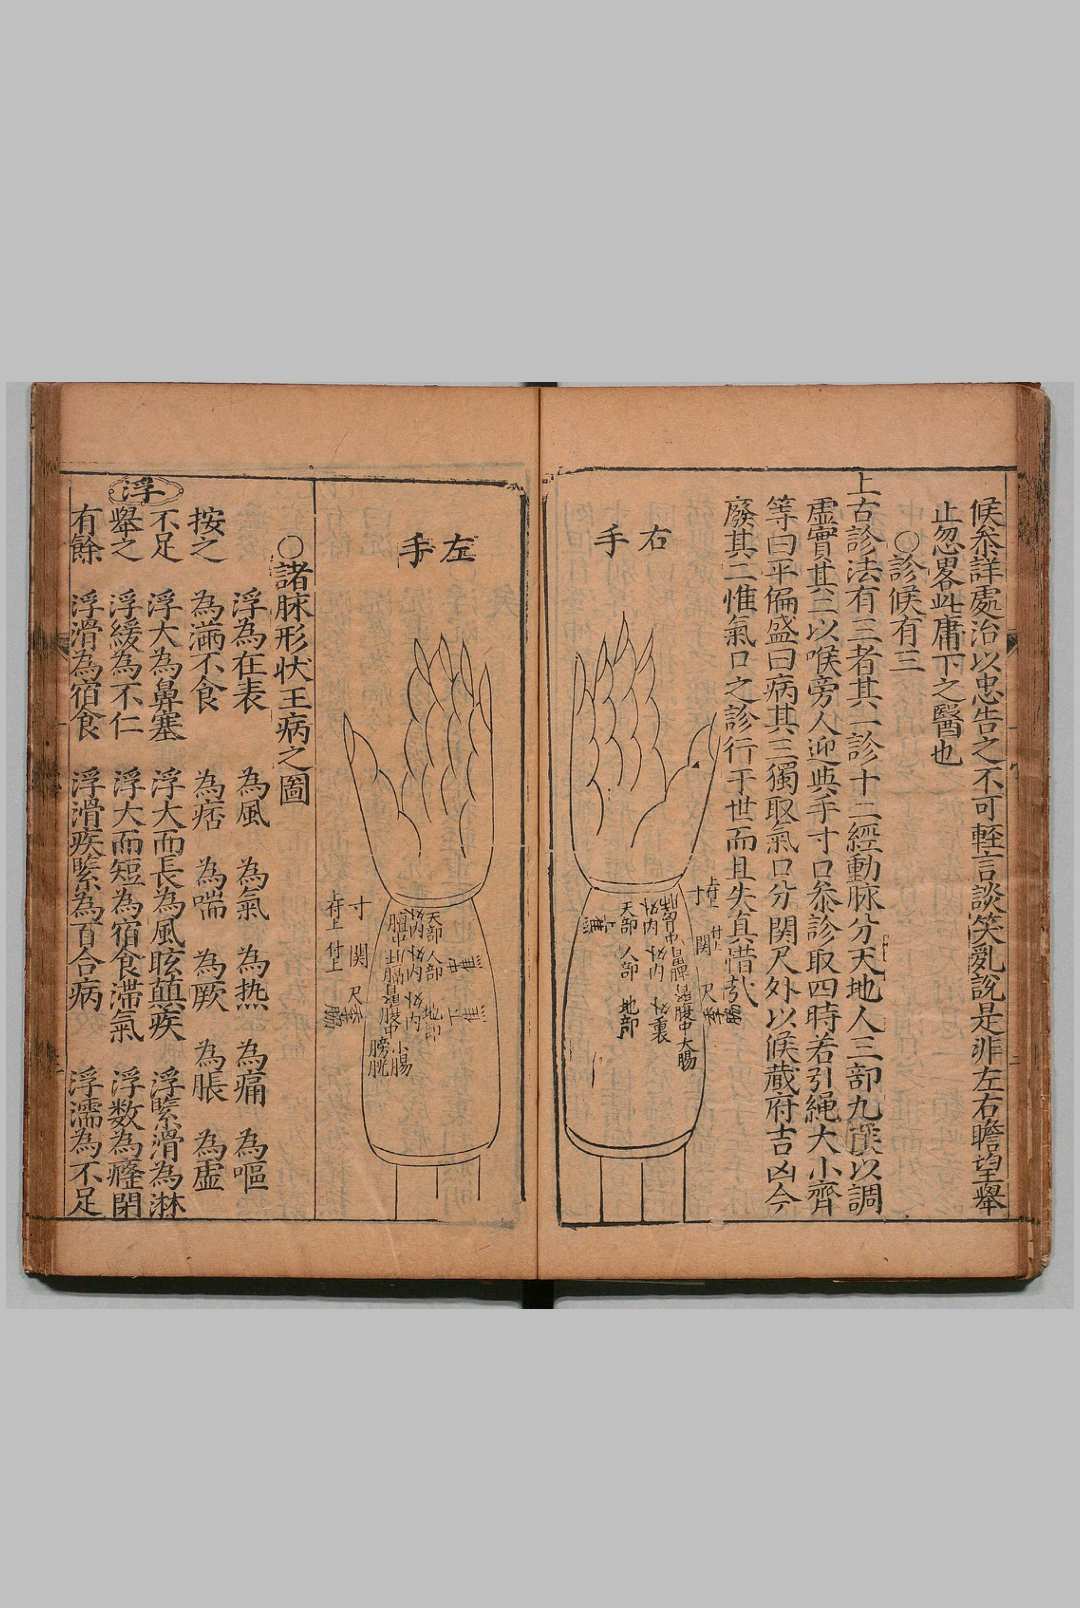 候叅詳處治以忠告之不可輊言談笑亂說是非左右瞻望舉
止忽畧此庸下之醫也
○診候有三
上古診法有三者其一診十二經動脉分天地人三部九候以調
虛實其二以喉旁人迎與手寸口叅診取四時若引繩大小齊
等曰平偏盛曰病其三獨取氣口分関尺外以候蔵府吉凶今
廢其二惟氣口之診行于世而且失真惜哉
右手
寸
関
尺
胃中
腹中大腸
外內 外內 外裏
天部 人部 地部
左手
天部 人部 地部
外內 外內 外內
腹中 小腸
膀胱
寸
関
尺
○諸脉形状王病之圖
浮為在表 為風 為氣 為热 為痛 為嘔
按之 為滿不食 為痞 為喘 為厥 為脹 為虛
不足 浮大為鼻塞 浮大而長為風眩蒝疾 浮緊滑為淋
浮
舉之 浮緩為不仁 浮大而短為宿食滯氣 浮数為癃閉
有餘 浮滑為宿食 浮滑疾緊為百合病 浮濡為不足